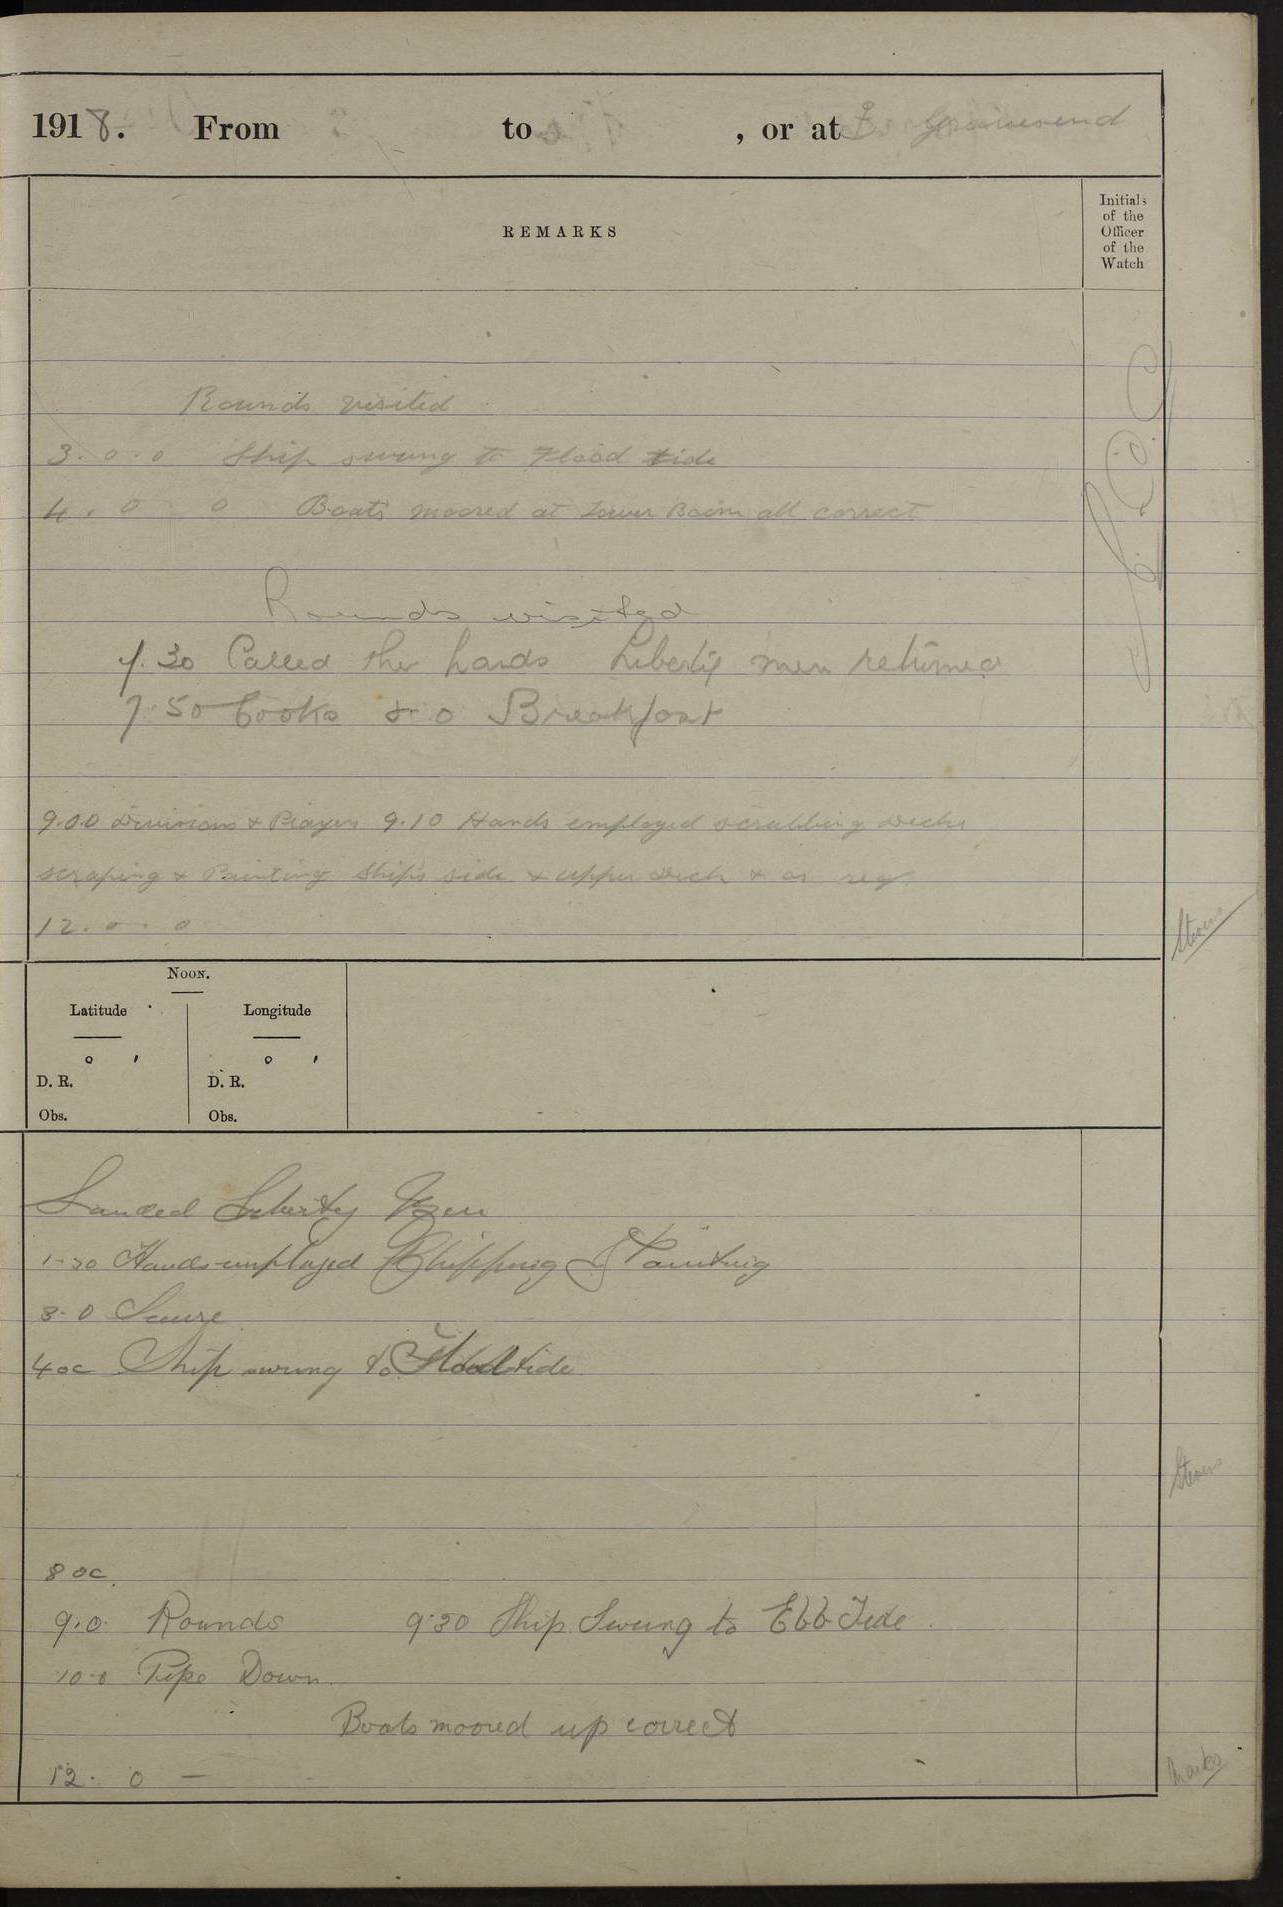 1918. From to , or at Gravesend
REMARKS
Initials
of the
Officer
of the
Watch
Rounds visited
3. 0. 0 Ship swung to Flood tide
4. 0 0 Boats moored at Lower Boom all correct
Rounds visited
7.30 Called the hands Liberty men returned
7.50 Cooks 8.0 Breakfast
9.0.0 Divisions & Prayers 9.10 Hands employed scrubbing decks
scraping & Painting Ship's side & upper deck & as req
12. 0. 0
Stevens
NOON.
Latitude Longitude
° ′ ° ′
D. R. D. R.
Obs. Obs.
Landed Liberty Men
1-30 Hands employed Chipping & Painting
3-0 Secure
4 oc Ship swung to Flood tide.
Stevens
8 oc.
9.0. Rounds 9.30 Ship Swung to Ebb Tide.
10-0 Pipe Down.
Boats moored up correct
12. 0 —
Marks